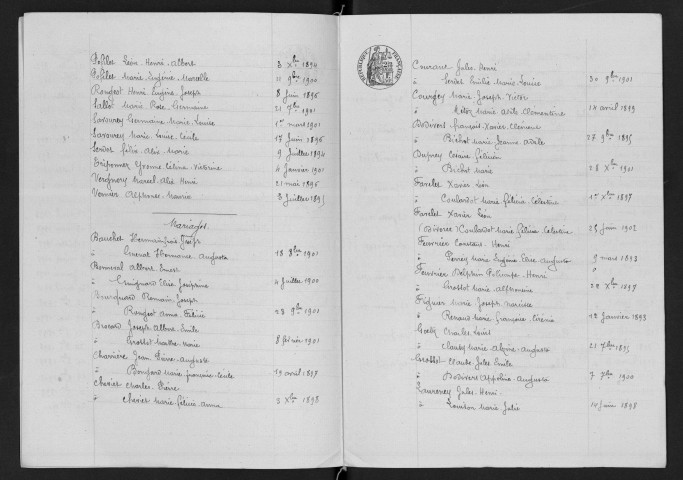 Pofilet Léon Henri Albert 3 Xbre 1894
Pofilet Marie Eugénie Marcelle 11 9bre 1900
Rougeot Henri Eugène Joseph 8 juin 1896
Sallot Marie Rose Germaine 21 7bre 1901
Savourey Germaine Marie Louise 1er mars 1901
Savourey Marie Louise Cécile 17 juin 1896
Sendet Félix Alix Marie 9 Juillet 1894
Yvonne Célina Victorine 4 janvier 1901
Marcel Alix Henri 21 mai 1896
Vernier Alphonse Maurice 3 Juillet 1895
Mariages
Bauchet Joseph
à Hermance Augusta 18 8bre 1901
Bonneval Albert Ernest
à Elise Joséphine 4 Juillet 1900
Romain Joseph
à Rougeot Anna 23 9bre 1901
Joseph Albert Emile
à Grosset Marthe Marie 8 février 1901
Charrière Jean Pierre Auguste
à Marie Françoise 19 avril 1897
Chevier Charles Pierre
à Chevier Marie Félicie Anna 3 Xbre 1898
REPUBLIQUE FRANÇAISE
Courant Jules Henri
à Sendet Emilie Marie Louise 30 9bre 1901
Courgey Marie Joseph Victor
à Marie Adèle Clémentine 14 avril 1893
Bodivers François Xavier Clément
à Bichet Marie Jeanne Adèle 27 9bre 1895
Duprey
à Bichet Marie 28 Xbre 1901
Farelet Xavier Léon
à Coulardot Marie Félicie Célestine 1er Xbre 1897
Farelet Xavier Léon
(Divorce) Coulardot Marie Félicie Célestine 25 juin 1902
Fevrier Constant Henri
à Marie Eugénie Augusta 9 mars 1893
Fevrier Delphin Henri
à Grosset Marie Alphonsine 22 Xbre 1897
Marie Joseph Narcisse
à Renaud Marie Françoise 12 Janvier 1893
Charles Louis
à Claudey Marie Alpine Augusta 21 7bre 1895
Grosset Claude Jules Emile
à Bodivers Appoline Augusta 7 7bre 1900
Laurency Jules Henri
à Louison Marie Julie 14 juin 1898